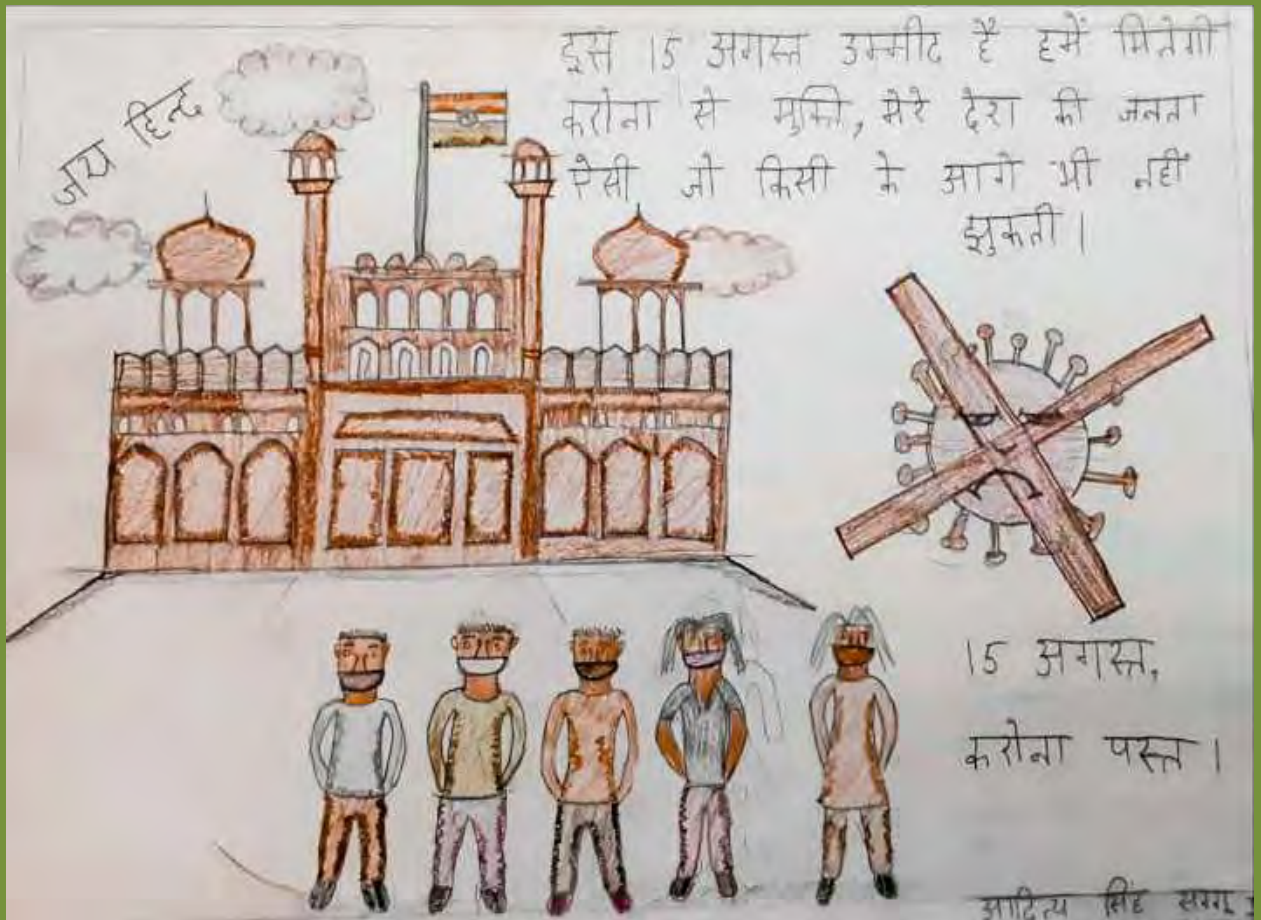 जय हिन्द
इस 15 अगस्त उम्मीद है हमें मिलेगी
करोना से मुक्ति, मेरे देश की जनता
ऐसी जो किसी के आगे भी नहीं
झुकती।
15 अगस्त,
करोना पस्त।
आदित्य सिंह